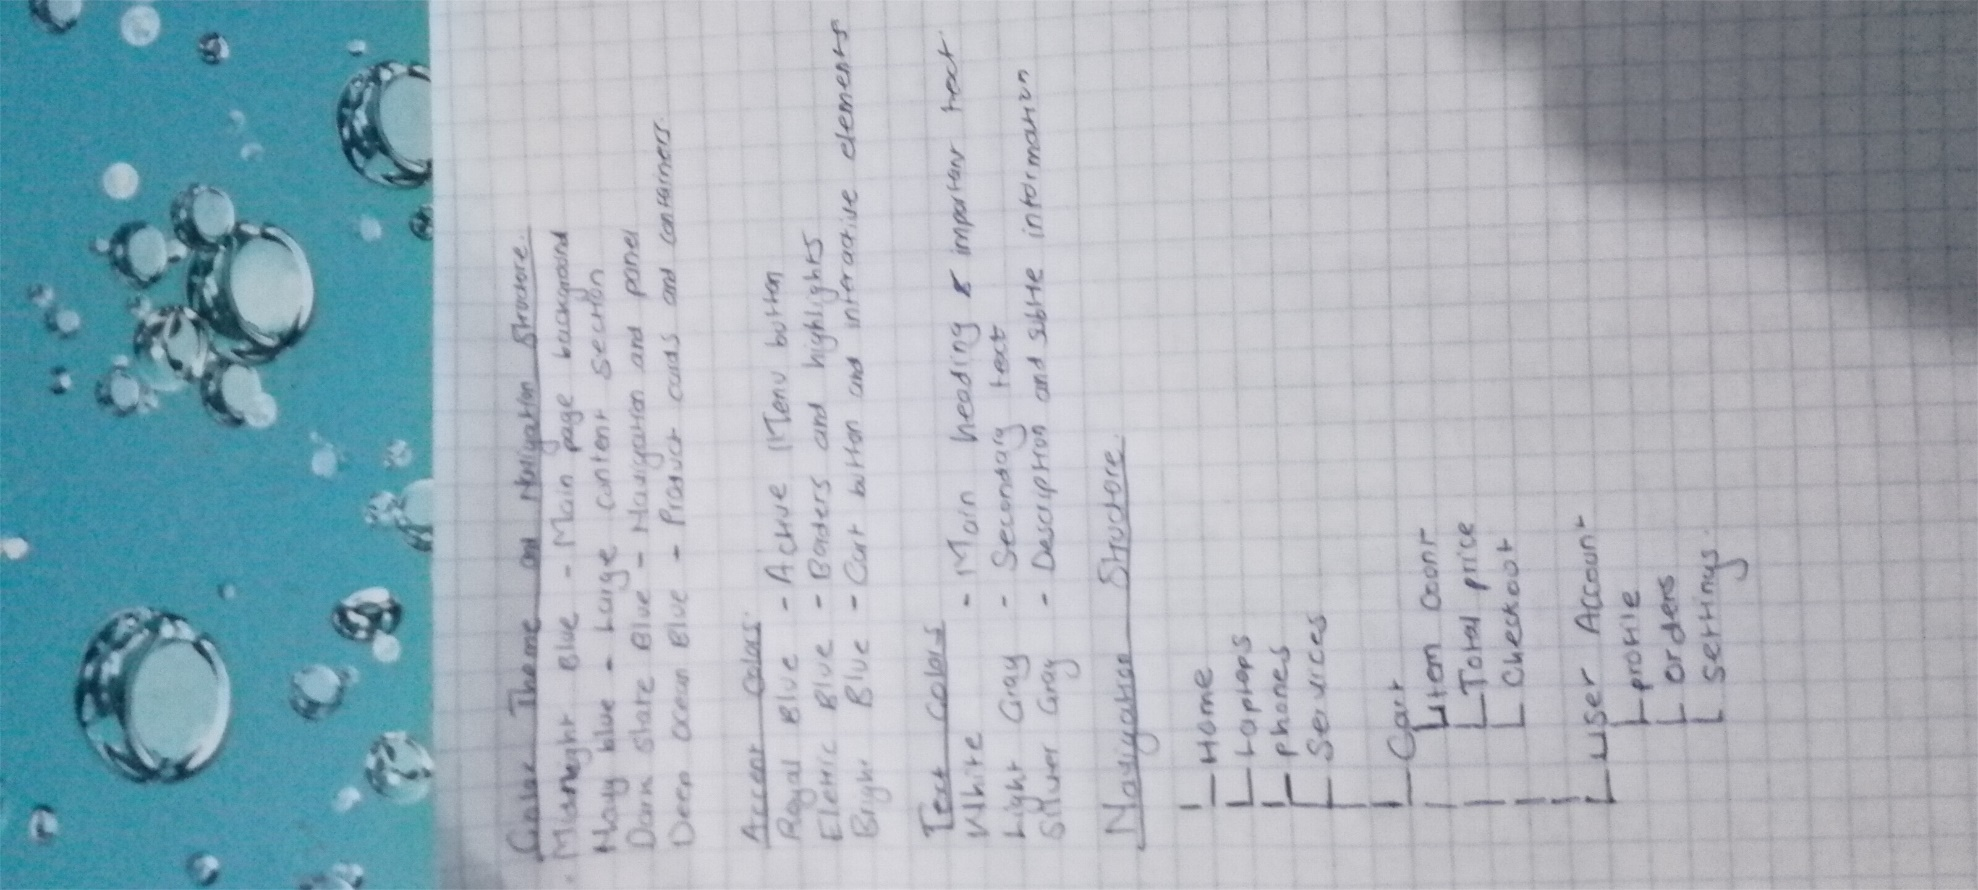 Color Theme and Navigation Structure.
Midnight Blue - Main page background
Navy blue - Large content section
Dark Slate Blue - Navigation and panel
Deep ocean Blue - Product cards and containers.
Accent Colors.
Royal Blue - Active Menu button
Electric Blue - Borders and highlights
Bright Blue - Cart button and interactive elements
Text Colors
White - Main heading & important text.
Light Gray - Secondary text
Silver Gray - Description and subtle information
Navigation Structure.
Home
Laptops
phones
Services
Cart
Item Count
Total price
Checkout
User Account
profile
orders
settings.